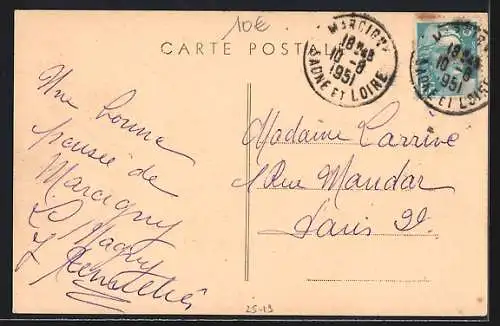 10€
CARTE POSTALE
MARCIGNY
18H
10-8
1951
SAONE ET LOIRE
18H
10-8
1951
SAONE ET LOIRE
Une bonne
pensée de
Marcigny
Magny
Madame Carrive
1 Rue Mandar
Paris 2e
25-19